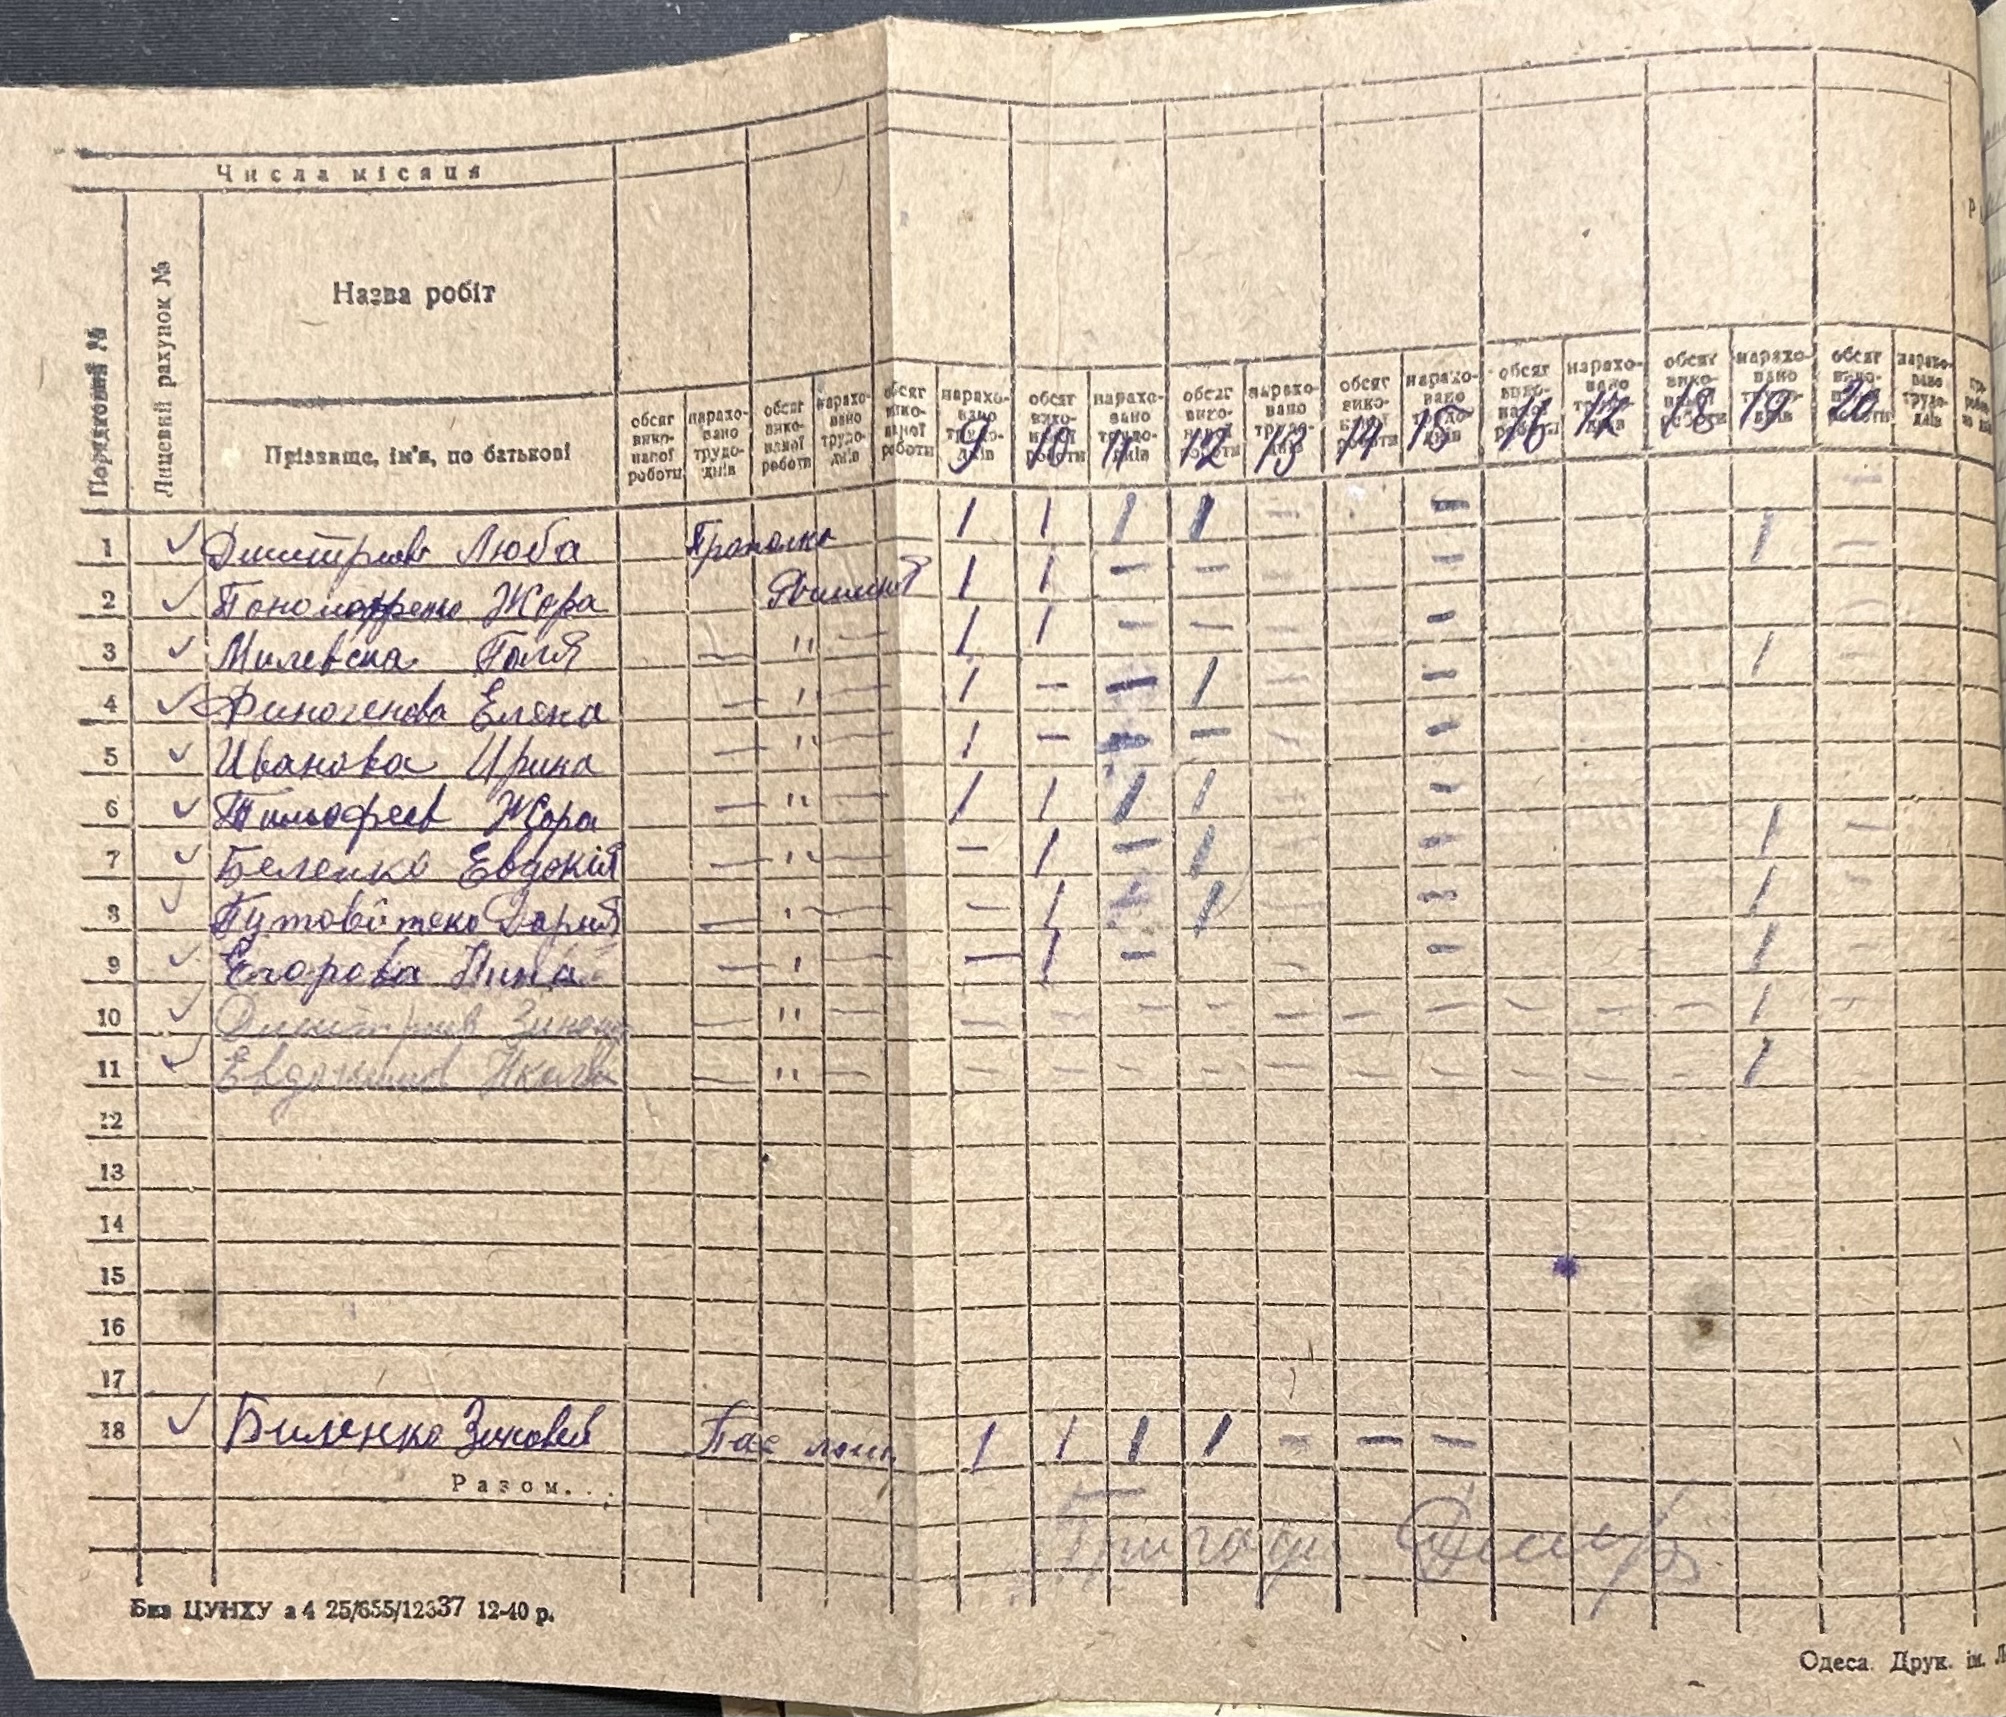 Числа місяця
Порядковий №
Лицевий рахунок №
Назва робіт
Прізвище, ім'я, по батькові
обсяг виконаної роботи нараховано трудоднів обсяг виконаної роботи нараховано трудоднів обсяг виконаної роботи нараховано трудоднів обсяг виконаної роботи нараховано трудоднів обсяг виконаної роботи нараховано трудоднів обсяг виконаної роботи нараховано трудоднів обсяг виконаної роботи нараховано трудоднів обсяг виконаної роботи нараховано трудоднів обсяг виконаної роботи нараховано трудоднів
9 10 11 12 13 14 15 16 17 18 19 20
1 ✓ Дмитриев Люба Прополка 1 1 1 1 — — 1 —
2 ✓ Пономаренко Жора 1 1 — — — — —
3 ✓ Милевска Галя — " — 1 1 — — — — 1 —
4 ✓ Финогенова Елена — " — 1 — — 1 — —
5 ✓ Иванова Ирина — " — 1 — — — — —
6 ✓ Тимофеев Жора — " — 1 1 1 1 — — 1 —
7 ✓ Беленко Евдокія — " — — 1 — 1 — — 1 —
8 ✓ Дария — " — — 1 — 1 — — 1
9 ✓ Егорова Нина — " — — 1 — — — 1
10 ✓ Дмитриев — " — — — — — — — — — — — 1 —
11 ✓ Евдокимов — " — — — — — — — — — — — 1
12
13
14
15
16
17
18 ✓ Биленко Зиновей Пас 1 1 1 1 — — —
Разом...
Бкв ЦУНХУ а4 25/655/12337 12-40 р.
Одеса. Друк. ім.